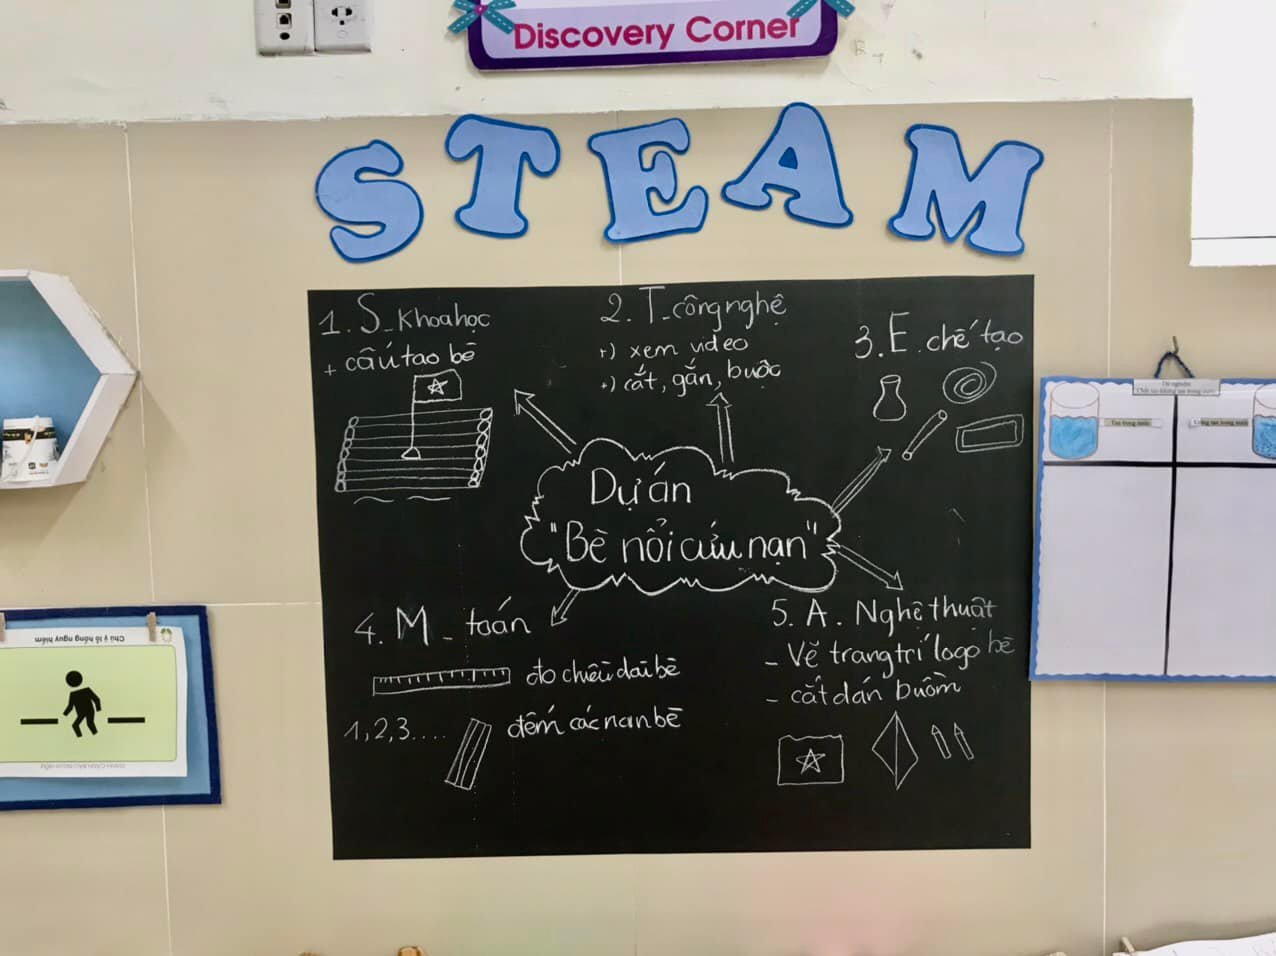 Discovery Corner
STEAM
1. S_ Khoa học
+ cấu tạo bè
2. T_ công nghệ
+) xem video
+) cắt, gắn, buộc
3. E. chế tạo
Dự án
"Bè nổi cứu nạn"
4. M_ toán
đo chiều dài bè
1,2,3....
đếm các nan bè
5. A. Nghệ thuật
- Vẽ trang trí logo bè
- cắt dán buồm
Chú ý lỗ hổng nguy hiểm
Tan trong nước
Không tan trong nước